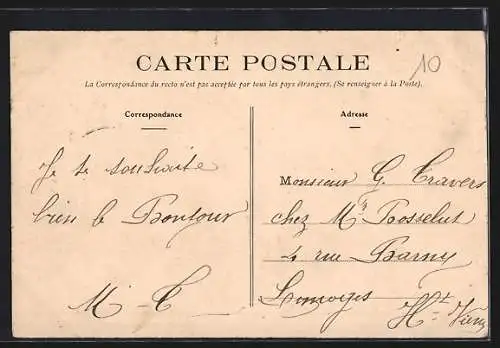 CARTE POSTALE
10
La Correspondance du recto n'est pas acceptée par tous les pays étrangers. (Se renseigner à la Poste).
Correspondance
Je te souhaite
bien le Bonjour
M - T
Adresse
Monsieur G. Travers
chez Mr Bosselut
4 rue Barny
Limoges
Hte Vienne